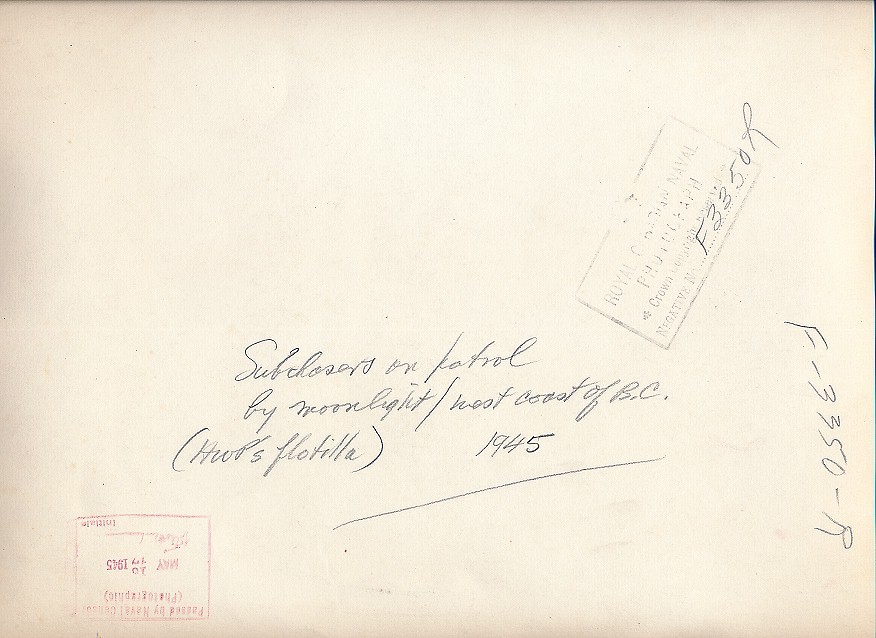 ROYAL CANADIAN NAVAL
PHOTOGRAPH
Crown
NEGATIVE No. F3350R
Subchasers on patrol
by moonlight / west coast of B.C.
flotilla) 1945
F-3350-R
Passed by Naval Censor
(Photographic)
MAY 1945
Initials